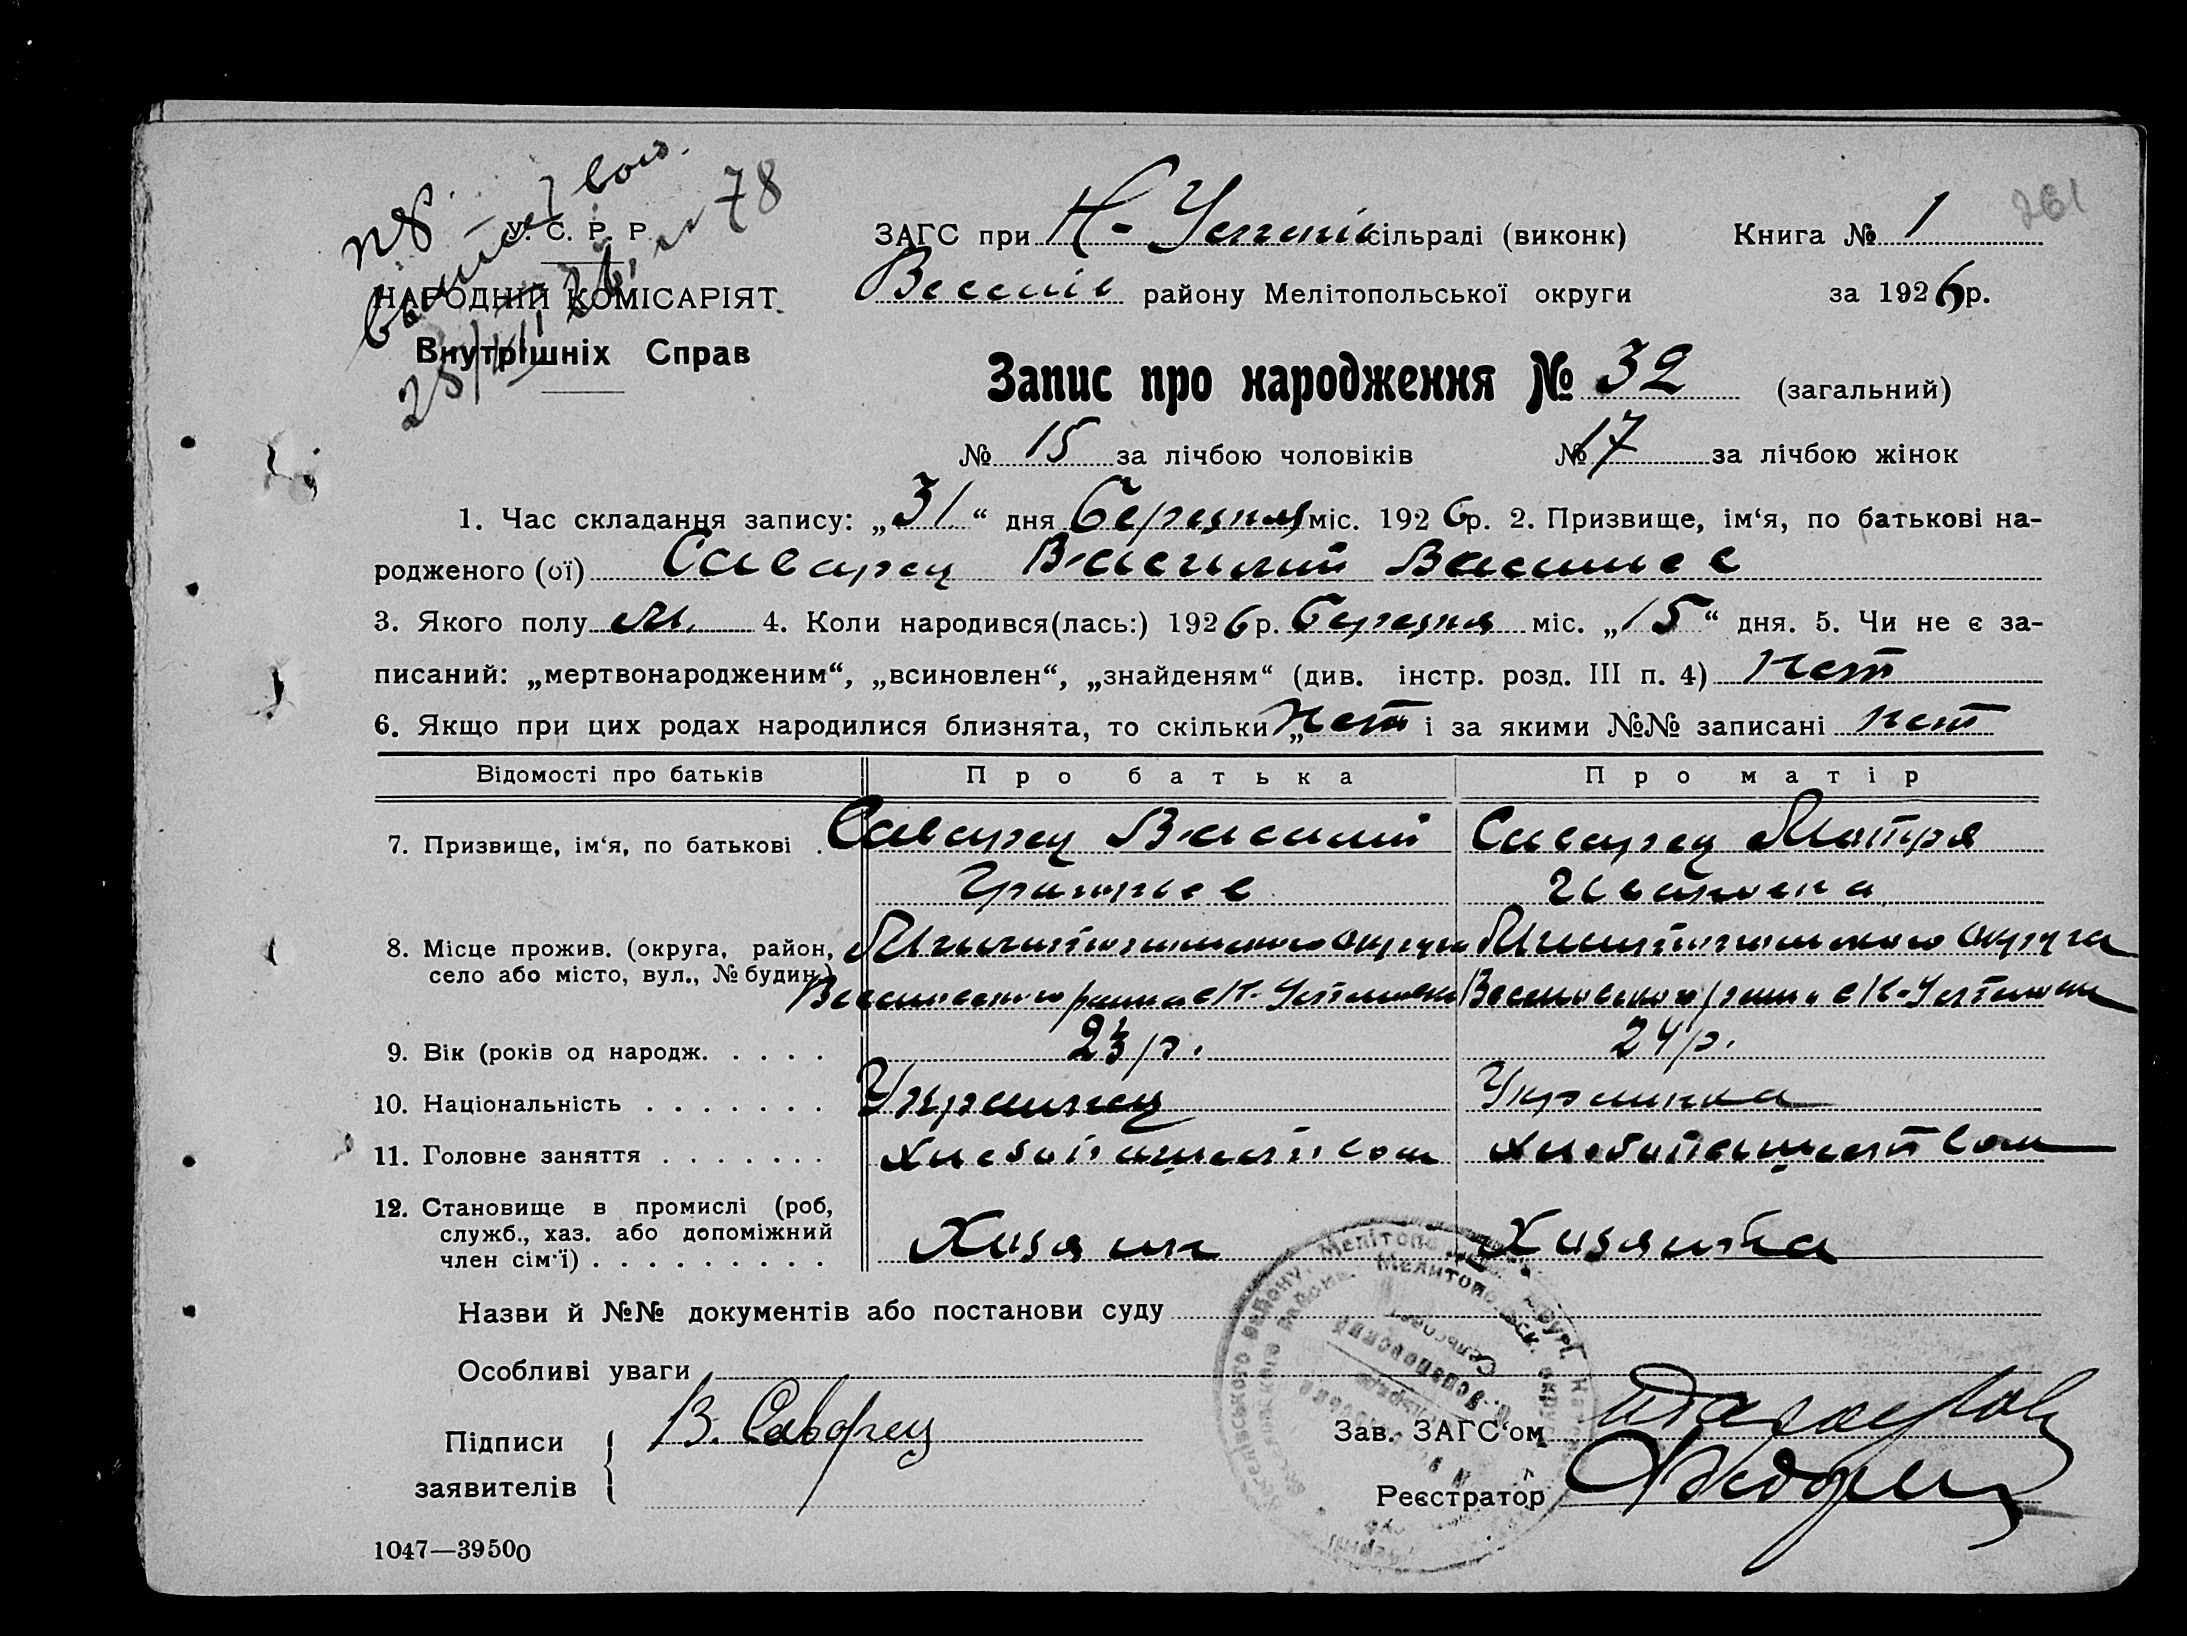 У. С. Р. Р.
НАРОДНІЙ КОМІСАРІЯТ
Внутрішніх Справ
№ 78
ЗАГС при Н-Успенів сільраді (виконк) Книга № 1
261
Веселів району Мелітопольської округи за 1926 р.
Запис про народження № 32 (загальний)
№ 15 за лічбою чоловіків № 17 за лічбою жінок
1. Час складання запису: „31“ дня березня міс. 1926 р. 2. Призвище, ім‘я, по батькові на-
родженого (ої) Саварец Василий Васильев
3. Якого полу м. 4. Коли народився(лась:) 1926 р. березня міс. „15“ дня. 5. Чи не є за-
писаний: „мертвонародженим“, „всиновлен“, „знайденям“ (див. інстр. розд. III п. 4) нет
6. Якщо при цих родах народилися близнята, то скільки „нет і за якими №№ записані нет
Відомості про батьків Про батька Про матір
7. Призвище, ім‘я, по батькові . Саварец Василий Саварец Мотря
Григорьев Ивановна
8. Місце прожив. (округа, район, Мелитопольского округа Мелитопольского округа
село або місто, вул., № будин.) Веселовского района с Н-Успеновки Веселовского района с Н-Успеновки
9. Вік (років од народж. . . . . 23 р. 24 р.
10. Національність . . . . . . . Украинец Украинка
11. Головне заняття . . . . . . . хлебопашеством хлебопашеством
12. Становище в промислі (роб,
служб., хаз. або допоміжний Хозяин Хозяйка
член сім‘ї) . . . . . . . . .
Назви й №№ документів або постанови суду
Особливі уваги
Підписи В. Саворец Зав. ЗАГС‘ом
заявителів Реєстратор
1047—39500